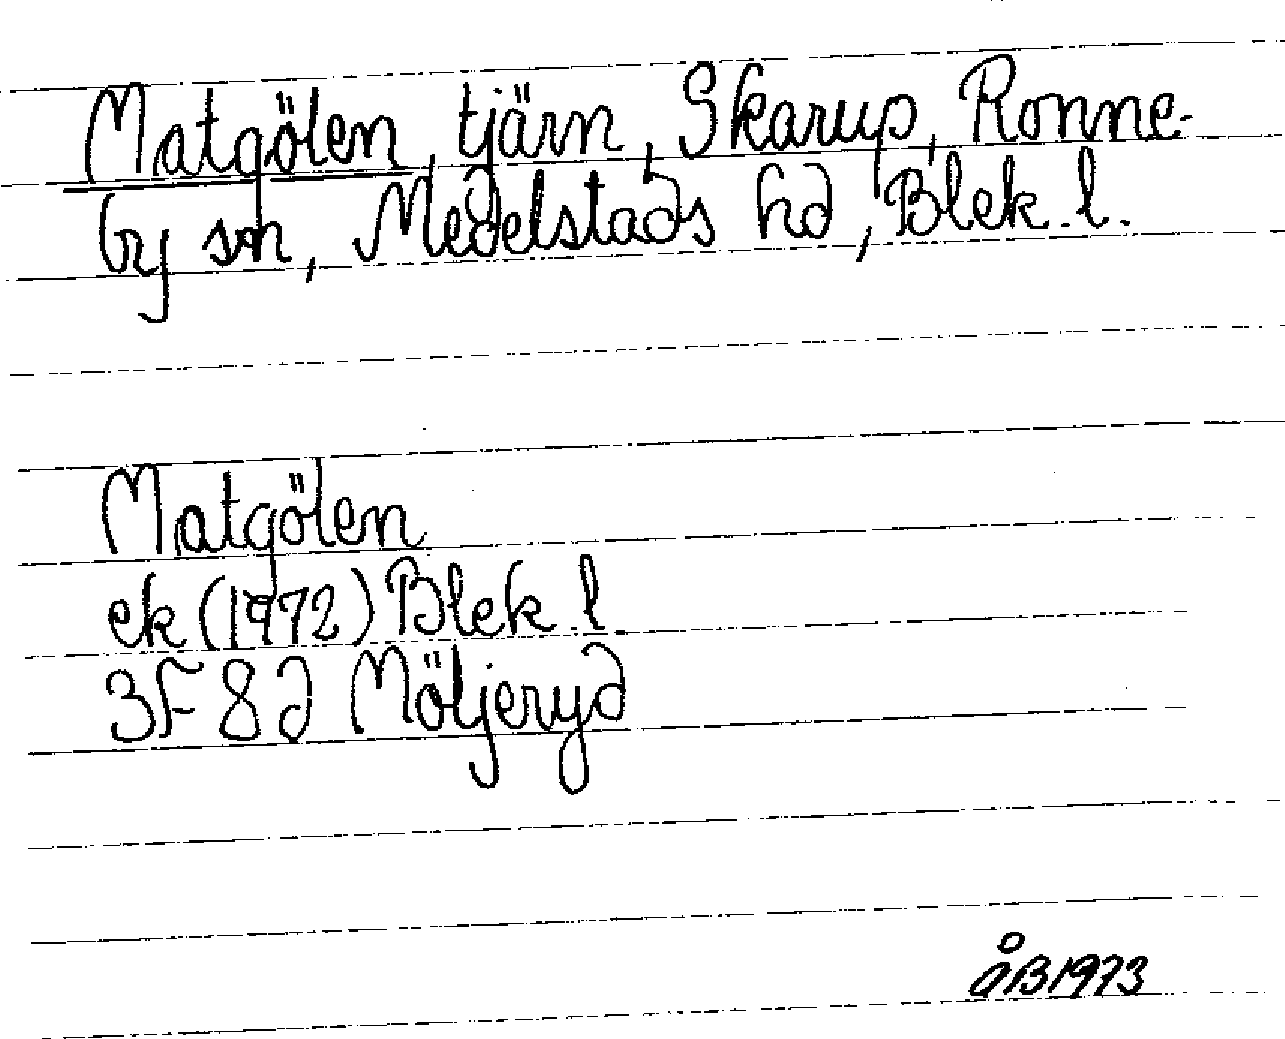 Matgölen, tjärn, Skarup, Ronne-
by sn, Medelstads hd, Blek. l.
Matgölen
ek (1972) Blek. l
3F 8d Möljeryd
ÅB 1973